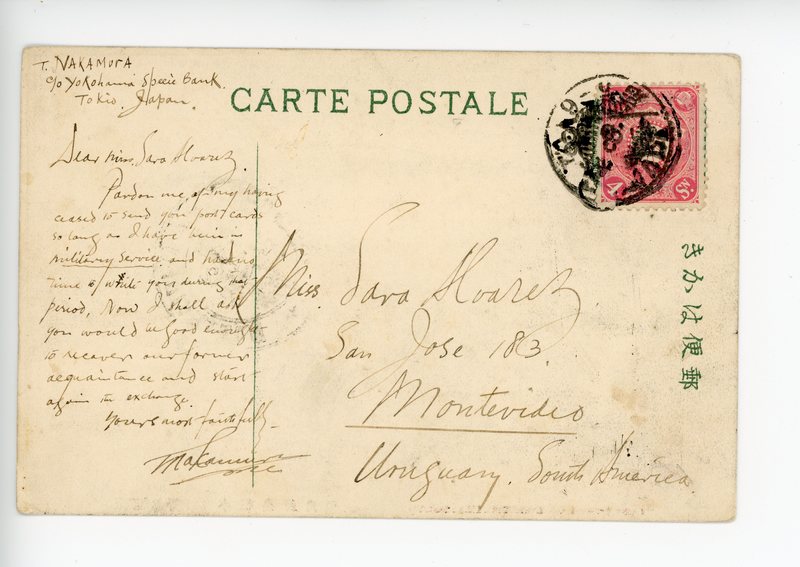 T. NAKAMURA
c/o Yokohama Specie Bank
Tokio, Japan.
CARTE POSTALE
Dear Miss. Sara Alvarez.
Pardon me, of my having
ceased to send you post cards
so long as I have been in
military service and had no
time to write you during that
period, Now I shall ask
you would be good enough
to recover our former
acquaintance and start
again the exchange.
Yours most faithfully
TNakamura
Miss. Sara Alvarez.
San Jose 183.
Montevideo
Uruguay. South America.
4 Sn.
郵便はかき